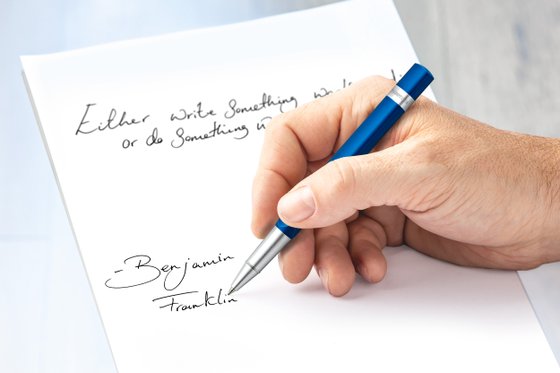 Either write something
or do something
-Benjamin
Franklin